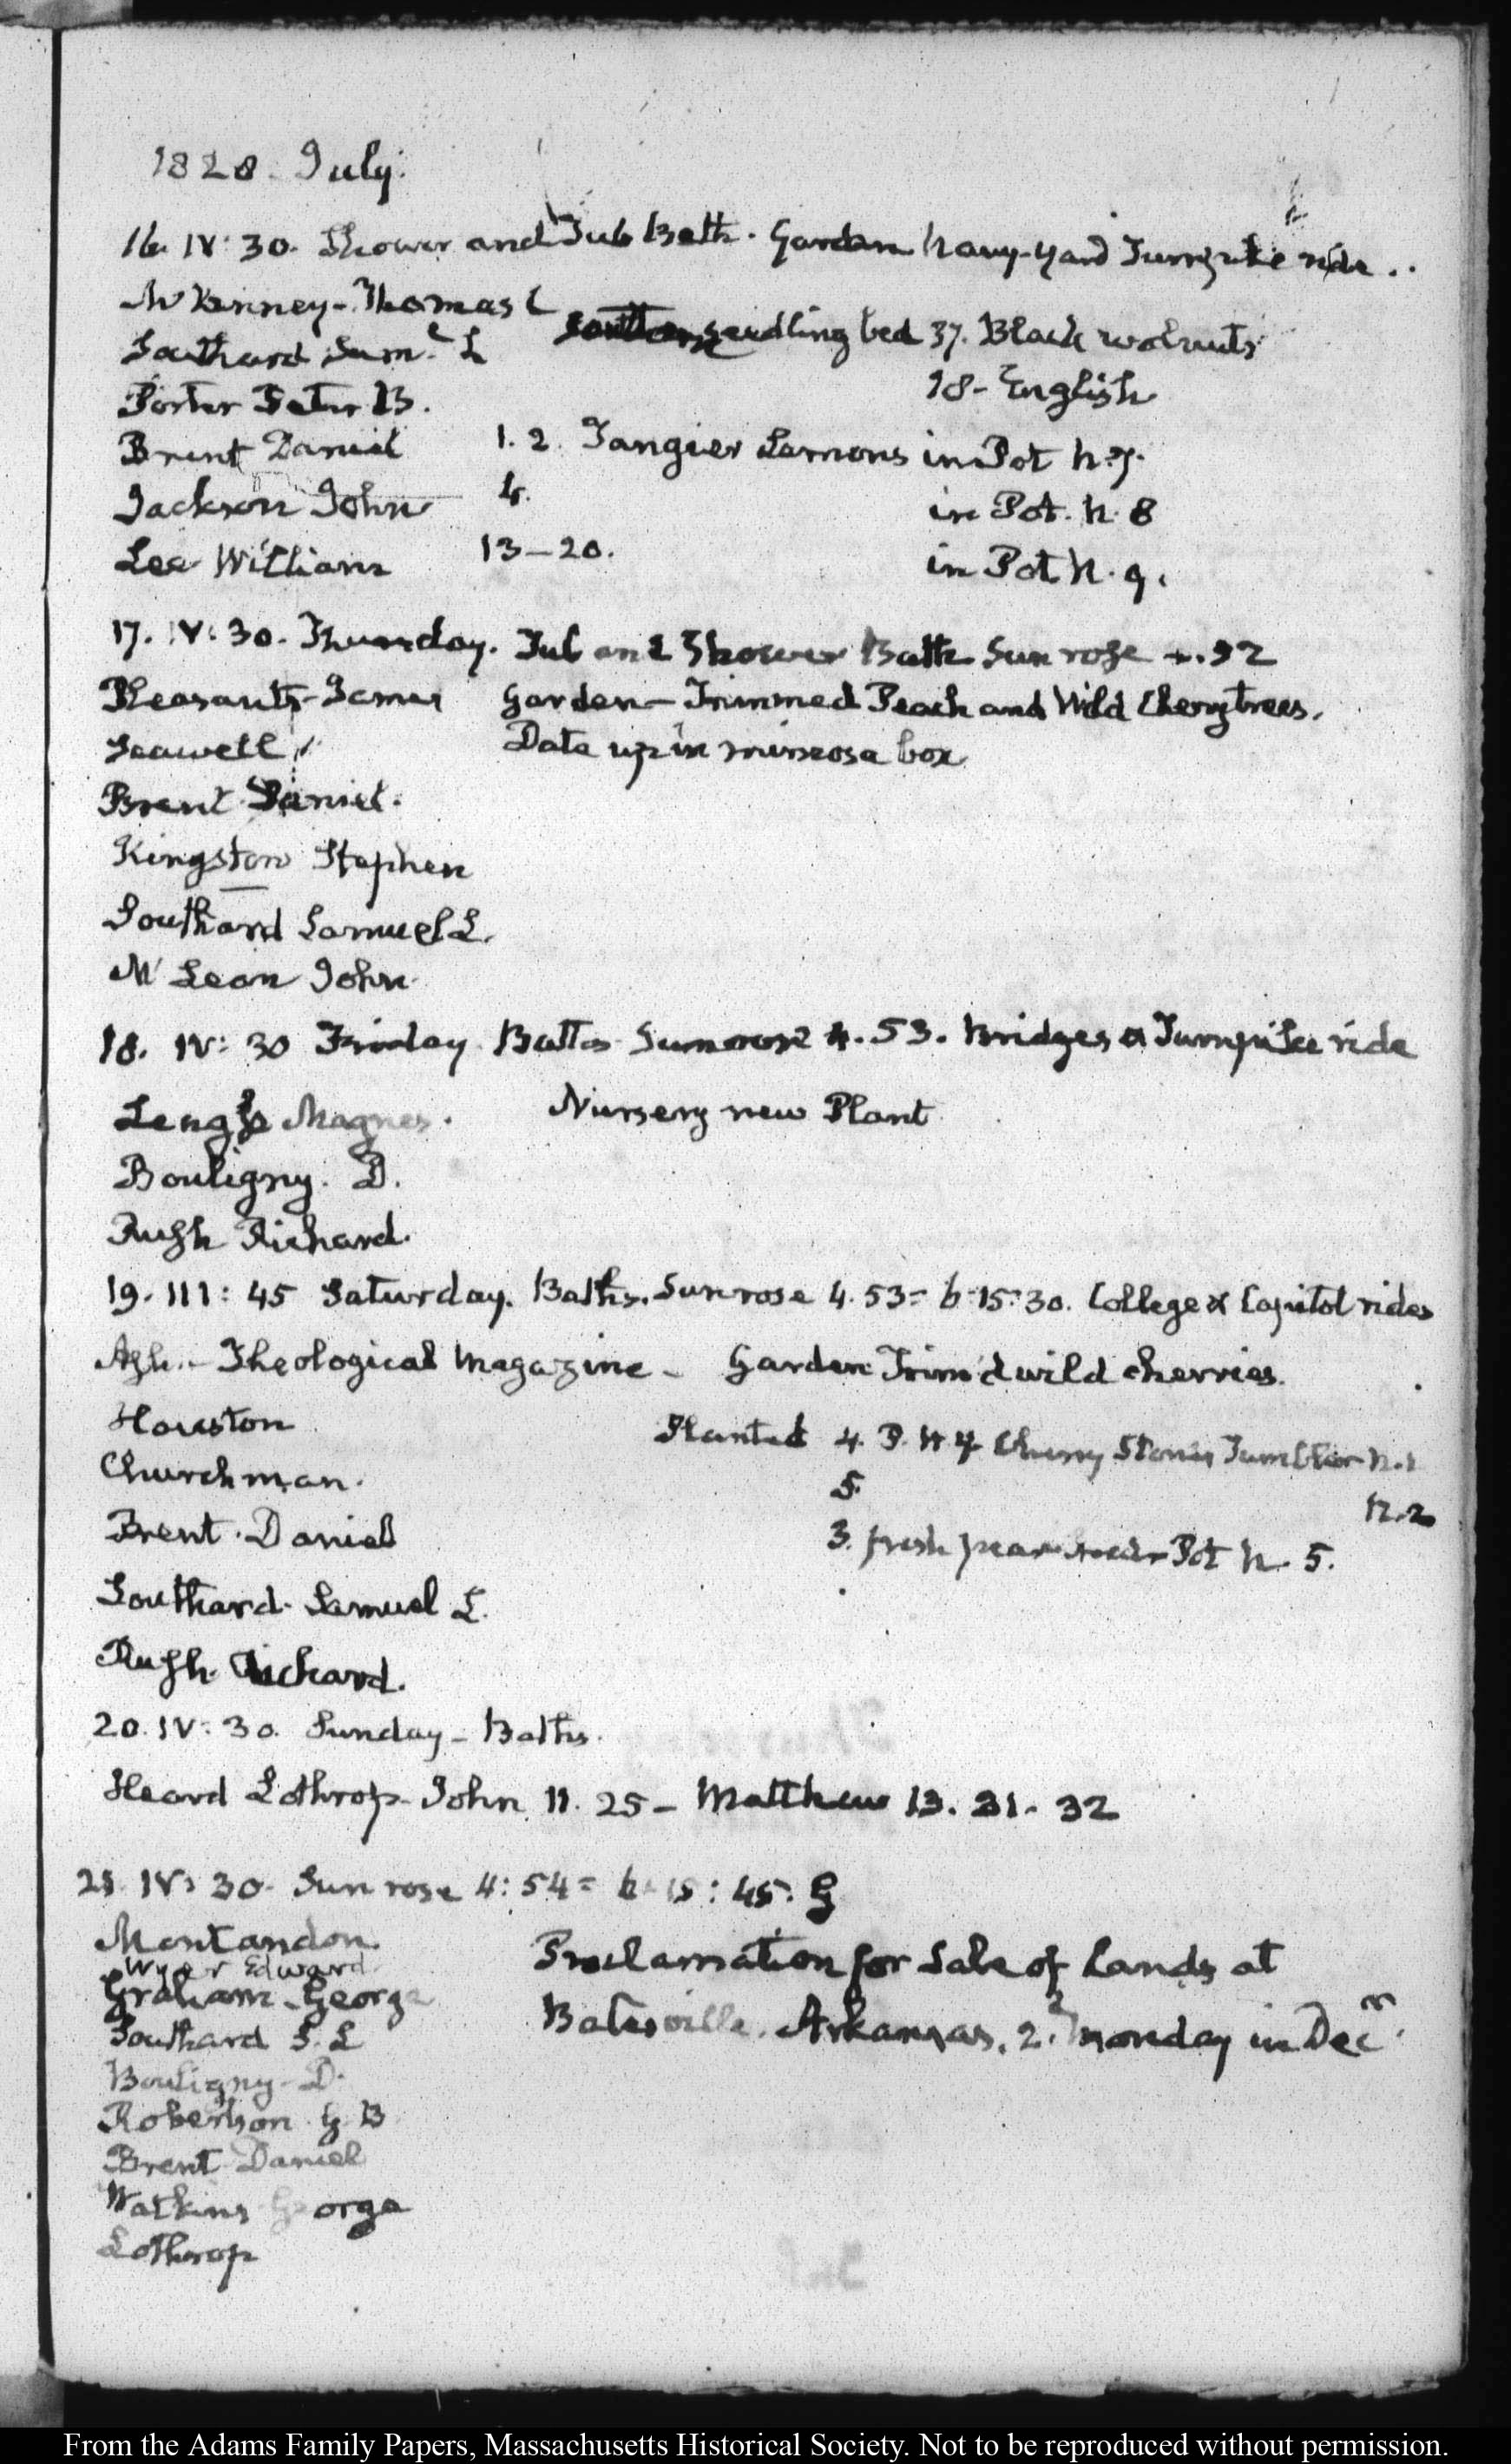 1828. July.
16. IV: 30. Shower and Tub Bath. Garden Navy-Yard Turnpike ride..
McKenney - Thomas L
Southard Sam.l L
seedling bed 37. Black walnuts
Porter Peter B.
18 - English
Brent Daniel
1. 2. Tangier Lemons in Pot N. 7.
Jackson John
4.
in Pot. N. 8
Lee William
13-20.
in Pot N. 9.
17. IV: 30. Thursday. Tub and Shower Bath Sun rose 4.52
Pleasants - James
Garden - Trimmed Peach and Wild Cherry trees.
Seawell
Date up in mimosa box
Brent Daniel.
Kingston Stephen
Southard Samuel L.
McLean John
18. IV: 30 Friday Baths Sun rose 4.53. Bridges & Turnpike ride
Magnes.
Nursery new Plant
Bouligny. D.
Rush Richard.
19. III: 45 Saturday. Baths. Sun rose 4.53 = b-15:30. College & Capitol rides
Ash. - Theological Magazine - Garden Trim'd wild cherries.
Houston
Planted 4. P. N 4 Cherry Stones Tumbler N. 1
Churchman.
5.
N. 2
Brent. Daniel
3. fresh Pot N. 5.
Southard. Samuel L.
Rush. Richard.
20. IV: 30. Sunday - Baths.
Heard Lothrop - John 11. 25 - Matthew 13. 31. 32
21. IV: 30. Sun rose 4: 54 = b-15: 45. G
Montandon.
Wyer Edward
Proclamation for Sale of Lands at
Graham - George
Batesville. Arkansas. 2.d Monday in Decr.
Southard S. L
Bouligny - D.
Robertson G. B
Brent Daniel
Watkins George
Lothrop
From the Adams Family Papers, Massachusetts Historical Society. Not to be reproduced without permission.